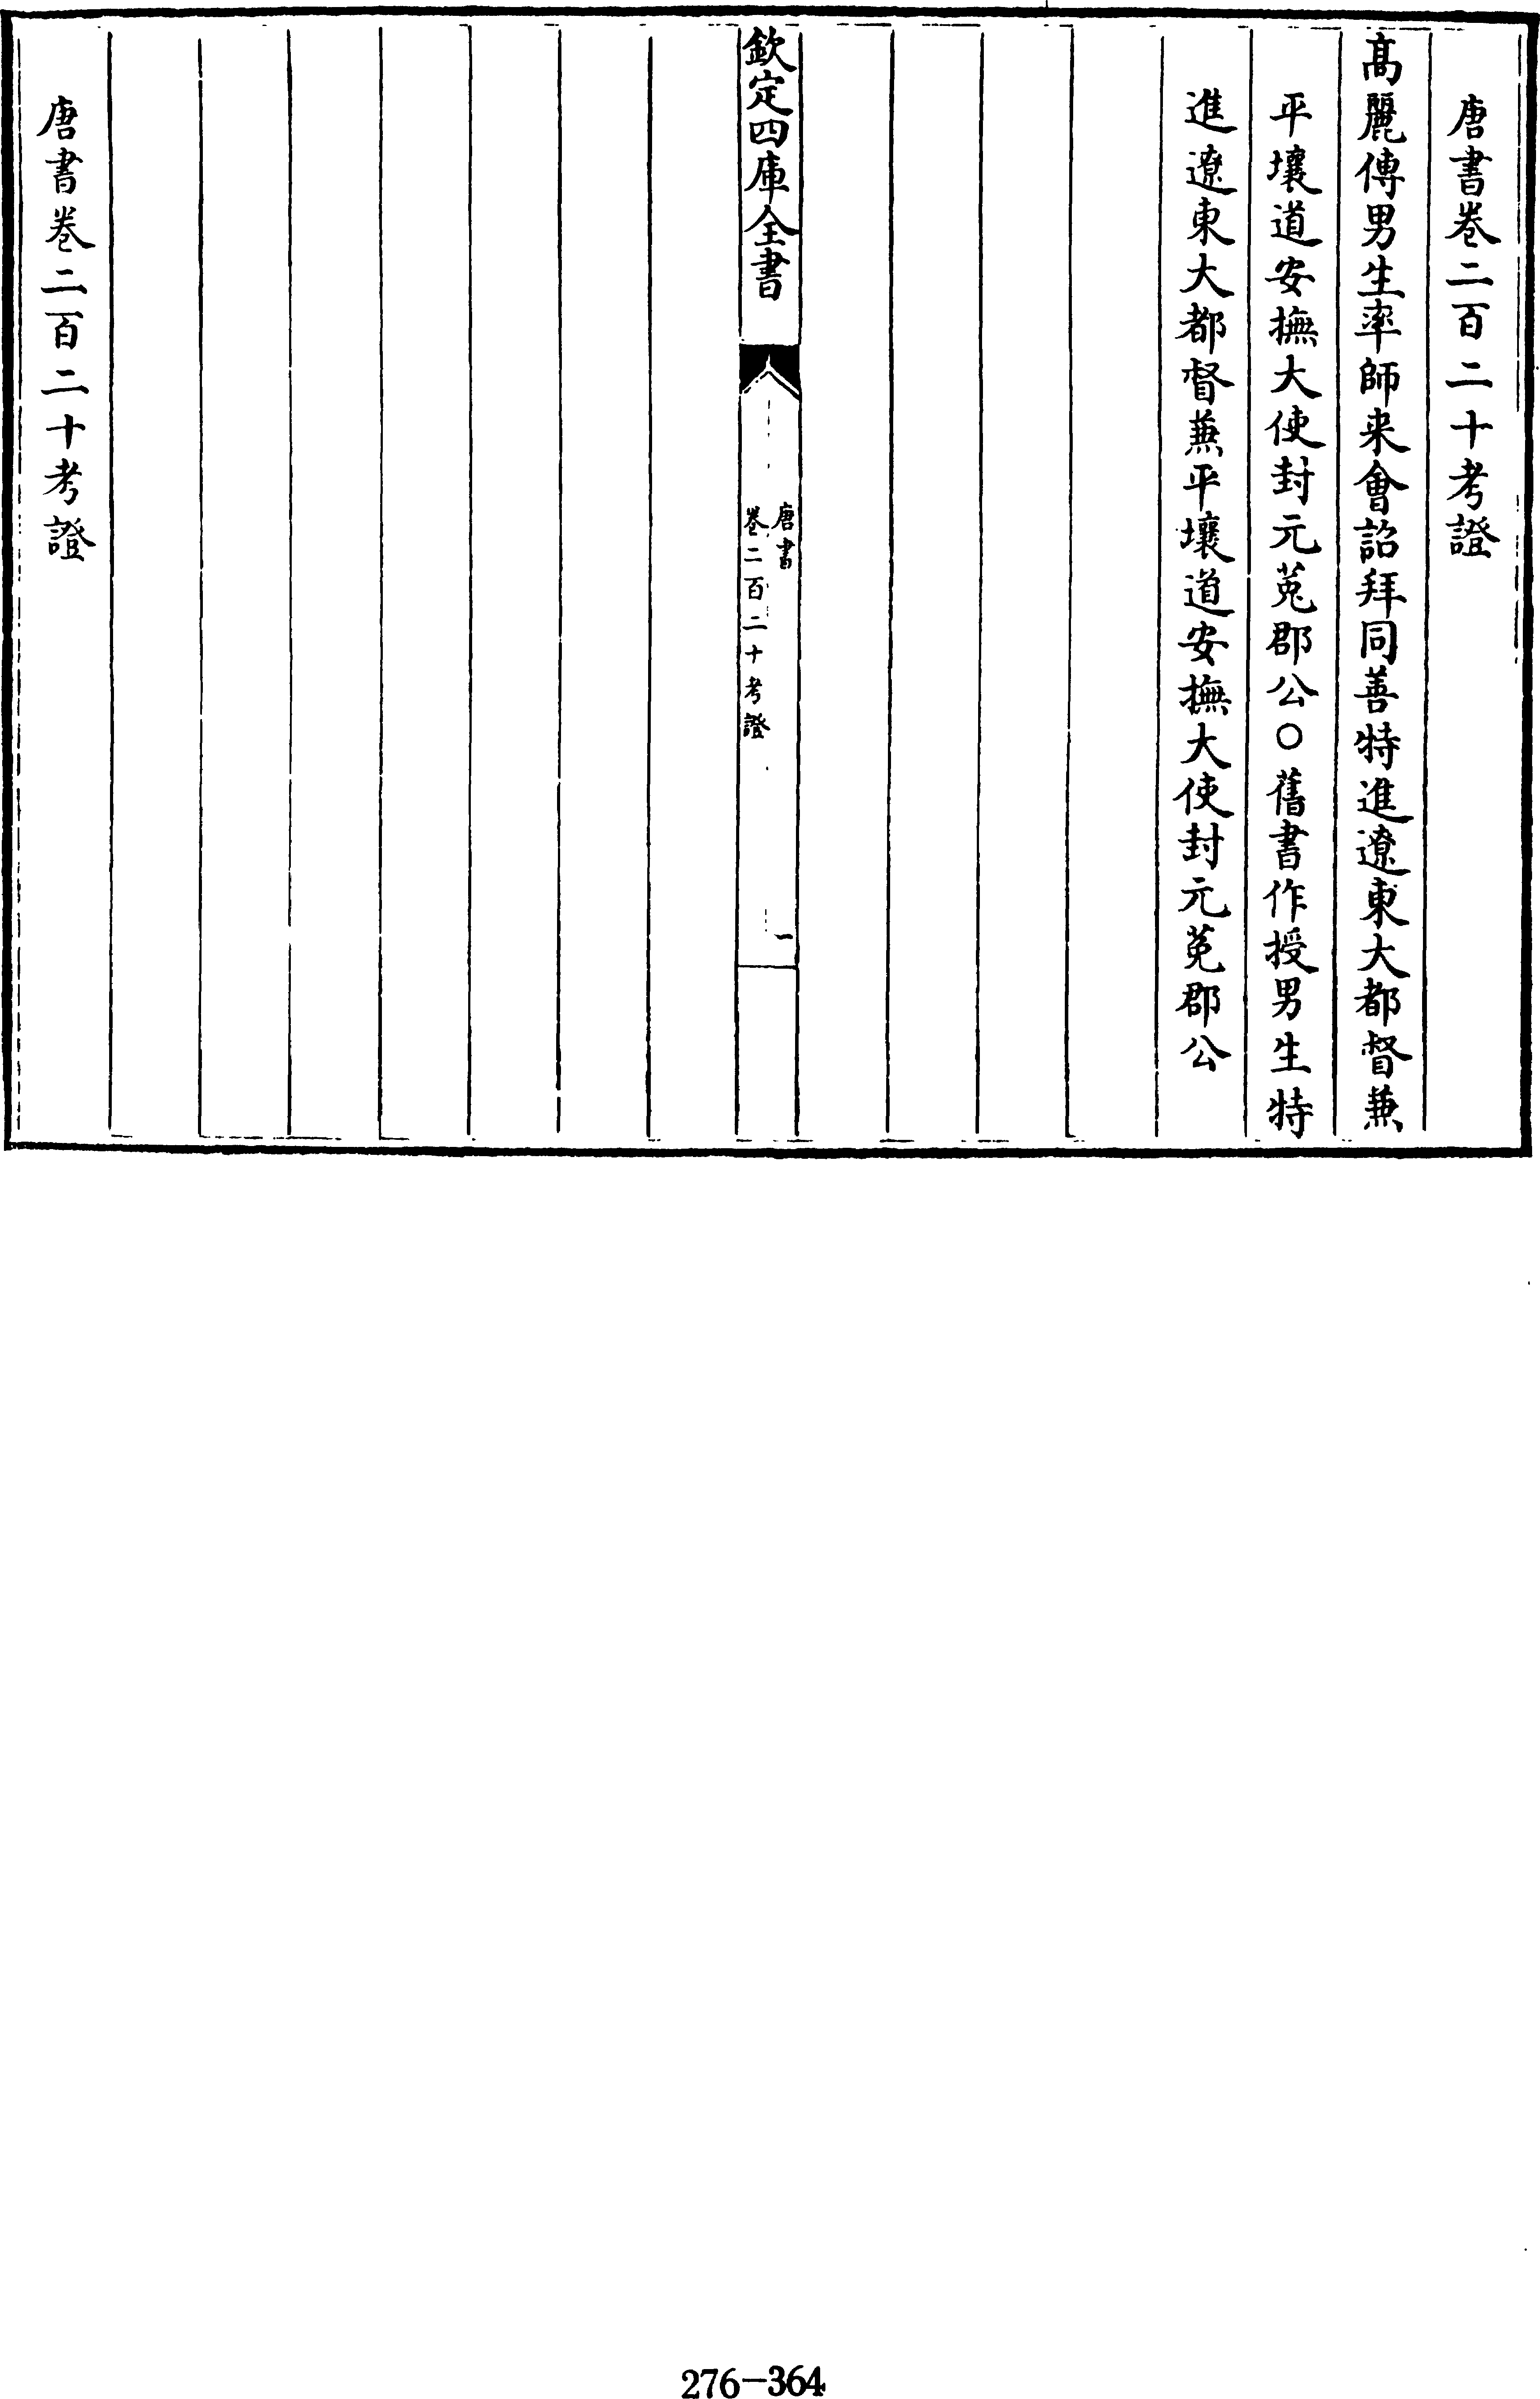 唐書卷二百二十考證
髙麗傳男生率師来會詔拜同善特進遼東大都督兼
平壤道安撫大使封元菟郡公〇舊書作授男生特
進遼東大都督兼平壤道安撫大使封元菟郡公
欽定四庫全書
唐書
卷二百二十考證
一
唐書卷二百二十考證
276-364